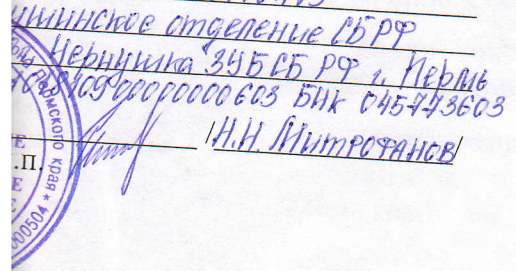 шинское отделение СБ РФ
Чернушка ЗУБ СБ РФ г. Пермь
00000000603 БИК 045773603
/Н.Н. Митрофанов/
.П.
рмского края *
000504 *